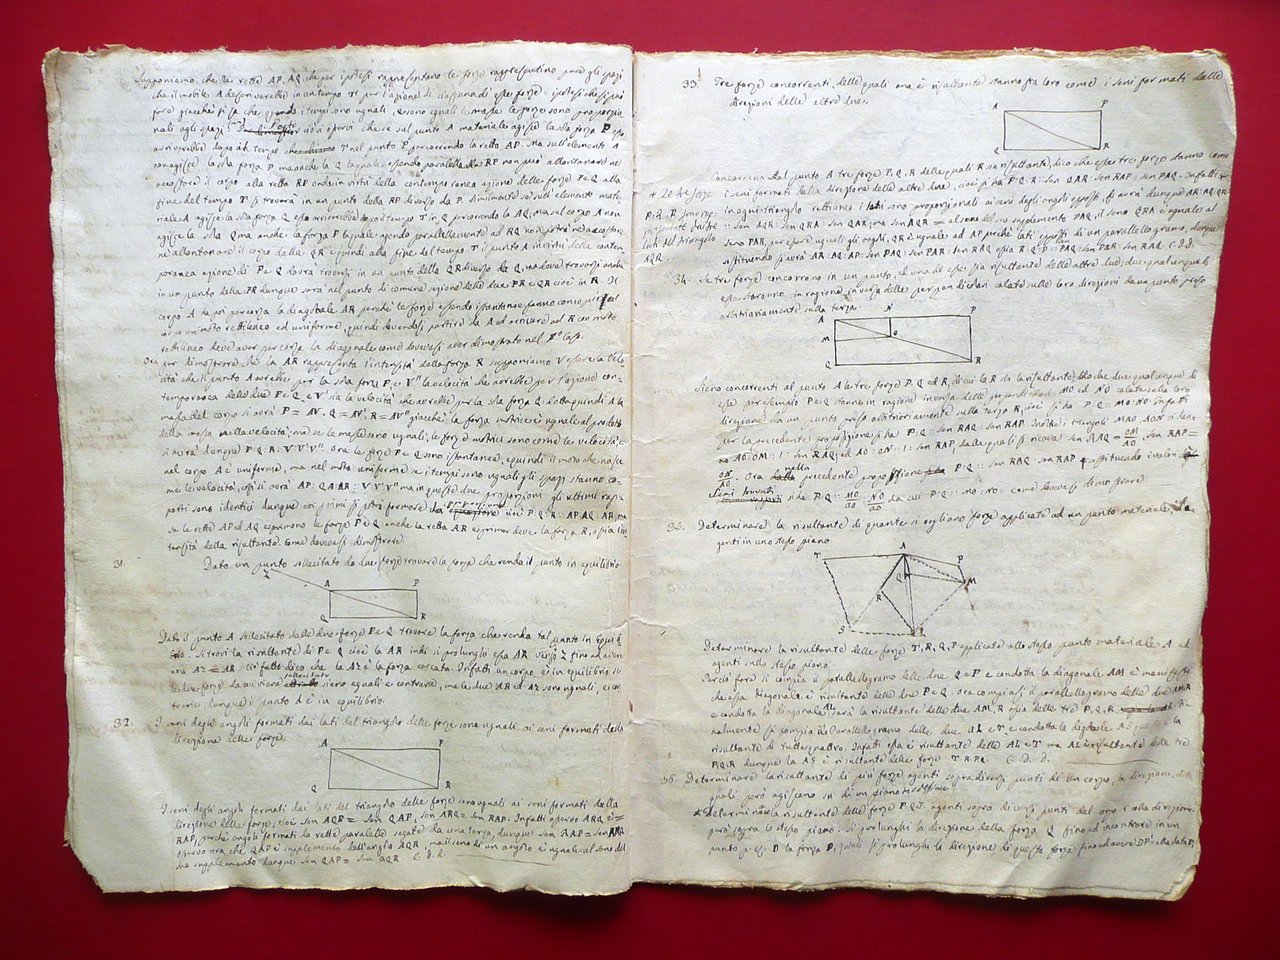 Supponiamo che le rette AP, AQ che per ipotesi rappresentano le forze rappresentino pure gli spazj
che il mobile A descriverebbe in un tempo T per l'azione di ciascuna di esse forze; ipotesi che si può
fare giacchè si sa che quando i tempi sono uguali, e sono eguali le masse le forze sono proporzio
nali agli spazj. ciò si opera che se sul punto A materiale agisce la sola forza P esso
arriverebbe dopo il tempo T nel punto P percorrendo la retta AP. Ma sull'elemento A
non agisce la sola forza P ma anche la Q la quale essendo parallela alla RP non può allontanare nè
accostare il corpo alla retta RP onde in virtù della contemporanea azione delle forze P e Q alla
fine del tempo T si troverà in un punto della RP diverso da P. Similmente se sull'elemento mate
riale A agisce la sola forza Q esso arriverebbe dopo il tempo T in Q percorrendo la AQ, ma sul corpo A non
agisce la sola Q ma anche la forza P la quale agendo parallelamente ad RQ non potrà nè accostare
nè allontanare il corpo dalla QR e quindi alla fine del tempo T il punto A in virtù della contem
poranea azione di P e Q dovrà trovarsi in un punto della QR diverso da Q, ma deve trovarsi anche
in un punto della PR dunque sarà nel punto di comune sezione delle due PR e QR cioè in R. Il
corpo A te poi percorra la diagonale AR perchè le forze essendo istantanee fanno concepire al
corpo un moto rettilineo ed uniforme, quindi dovendosi partire da A ed arrivare ad R con moto
rettilineo deve aver percorsa la diagonale come dovevasi aver dimostrato nel 1° Caso.
Ora per dimostrare che la AR rappresenta l'intensità della forza R supponiamo V essere la velo
cità che il punto A avrebbe per la sola forza P, e V'' la velocità che avrebbe per l'azione con
temporanea delle due P e Q e V' sia la velocità che avrebbe per la sola forza Q detta quindi A la
massa del corpo si avrà P = AV, Q = AV', R = AV'' giacchè la forza motrice è uguale al prodotto
della massa nella velocità; ma se le masse sono uguali, le forze motrici sono come le velocità e
si avrà dunque P:Q:R::V:V':V''. Ora le forze P e Q sono istantanee, e quindi il moto che nasce
nel corpo A è uniforme, ma nel moto uniforme se i tempi sono uguali gli spazj stanno co
me le velocità, così si avrà AP:QA:AR::V:V':V'' ma in queste due proporzioni gli ultimi rap
porti sono identici dunque con i primi si potrà formare la proporzione cioè P:Q:R::AP:AQ:AR, ma
se le rette AP ed AQ esprimono le forze P e Q anche la retta AR esprimer deve la forza R, ossia l'in
tensità della risultante come dovevasi dimostrare.
31. Dato un punto sollecitato da due forze trovare la forza che renda il punto in equilibrio
Z
A P
Q R
Dato il punto A sollecitato dalle due forze P e Q trovare la forza che renda tal punto in equili
brio. Si trovi la risultante di P e Q cioè la AR indi si prolunghi essa AR verso Z fino ad avere
una AZ = AR. Ciò fatto dico che la AZ è la forza cercata. Infatti un corpo è in equilibrio se
le due forze da cui viene sollecitato sieno eguali e contrarie, ma le due AR ed AZ sono uguali, e con
trarie dunque il punto A è in equilibrio.
32. I seni degli angoli formati dai lati del triangolo delle forze sono uguali ai seni formati dalle
direzione delle forze.
A P
Q R
I seni degli angoli formati dai lati del triangolo delle forze sono uguali ai seni formati dalla
direzione delle forze, cioè Sen AQR = Sen QAP, Sen ARQ = Sen RAP. Infatti osservo ARQ è =
RAP, perchè angoli formati da rette parallele segate da una terza, dunque Sen RAP = Sen ARQ
osservo ora che QAP è suplemento dell'angolo AQR, ma il seno di un angolo è uguale al seno del
suo supplemento dunque Sen QAP = Sen AQR. C.d.d.
33. Tre forze concorrenti, delle quali una è risultante stanno fra loro come i seni formati dalle
direzioni delle altre due.
A P
Q R
Concorrano dal punto A tre forze P, Q, R delle quali R sia risultante, dico che esse tre forze stanno come
i seni formati dalla direzione delle altre due, cioè si ha P:Q:R::Sen QAR:Sen RAP:Sen PAQ. Infatti
in ogni triangolo rettilineo i lati sono proporzionali ai seni degli angoli opposti, si avrà dunque AR:AQ:QR
::Sen AQR:Sen QRA:Sen QAR; ma Sen AQR = al seno del suo suplemento PAQ, il Seno QRA è uguale al
Seno PAR, per essere uguali gli angoli, QR è uguale ad AP perchè lati opposti di un parallelogramo, dunque
sostituendo si avrà AR:AQ:AP::Sen PAQ:Sen PAR:Sen RAQ ossia R:Q:P::Sen PAQ:Sen PAR:Sen RAQ. C.d.d.
+ Le tre forze
P:Q:R sono rap
presentate dai tre
lati del triangolo
AQR.
34. Se tre forze concorrono in un punto, ed una di esse sia risultante delle altre due; due qualunque di
esse staranno in ragione inversa delle perpendicolari calate sulle loro direzioni da un punto preso
arbitrariamente sulla terza.
A N P
M O
Q R
Sieno concorrenti al punto A le tre forze P, Q ed R, di cui la R sia la risultante, dico che due qualunque di
esse per esempio P e Q stanno in ragione inversa delle perpendicolari MO ed NO calate sulla loro
direzione da un punto preso arbitrariamente sulla terza R, cioè si ha P:Q::MO:NO. Infatti
per la precedente proposizione si ha P:Q::Sen RAQ:Sen RAP. Inoltre i triangoli MAO, AON ci dan
no AO:OM::1:Sen RAQ; ed AO:ON::1:Sen RAP, dalle quali si ricava Sen RAQ = OM/AO, Sen RAP =
ON/AO. Ora nella precedente proporzione P:Q::Sen RAQ:Sen RAP sostituendo i valori
Seni trovati si ha P:Q::MO/AO:NO/AO da cui P:Q::MO:NO; come dovevasi dimostrare.
35. Determinare la risultante di quante si vogliano forze applicate ad un punto materiale, ed a
genti in uno stesso piano.
T A P
Q M
R
S L
Determinare la risultante delle forze T, R, Q, P applicate allo stesso punto materiale A ed
agenti sullo stesso piano.
Perciò fare si compia il parallelogramo delle due Q e P e condotta la diagonale AM è manifesto
che essa diagonale è risultante delle due P e Q. Ora compiasi il parallelogramo delle due AM, R
e condotta la diagonale AL sarà la risultante delle due AM, R ossia delle tre P, Q, R. Fi
nalmente si compia il Parallelogramo delle due AL e T, e condotta la diagonale AS questa è la
risultante di tutte quattro. Infatti essa è risultante delle AL e T ma AL è risultante delle tre
P, Q, R dunque la AS è risultante delle forze T.R.P.Q. C.d.d.
36. Determinare la risultante di più forze agenti sopra diversi punti di un corpo, la direzione delle
quali però agiscano su di un piano stesso.
Determinare la risultante delle forze P, Q, T agenti sopra diversi punti del corpo e colla direzione
però sopra lo stesso piano. Si prolunghi la direzione della forza Q fino ad incontrare in un
punto p. es. D la forza P, quindi si prolunghi la direzione di questa forza fino ad avere DP' = alla data P,